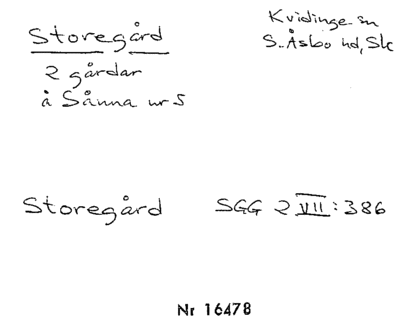 Storegård
Kvidinge sn
S. Åsbo hd, Sk
2 gårdar
å Sånna nr 5
Storegård SGG 2 VII:386
Nr 16478